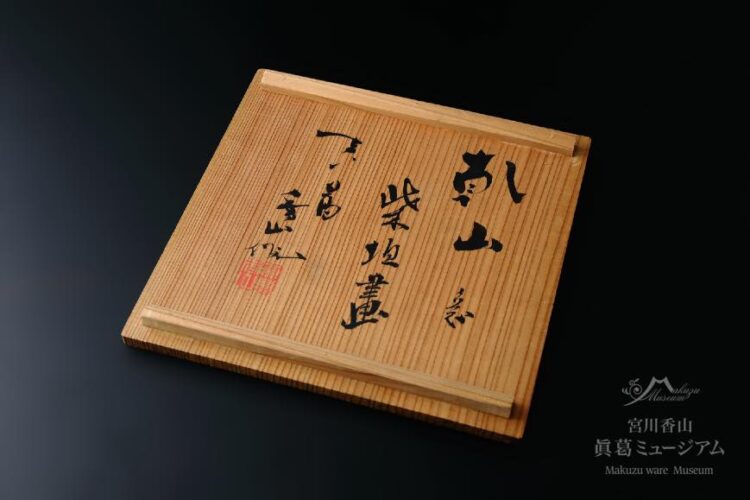 乾山意
柴垣畫
真葛
香山作
Makuzu
Museum
宮川香山
眞葛ミュージアム
Makuzu ware Museum